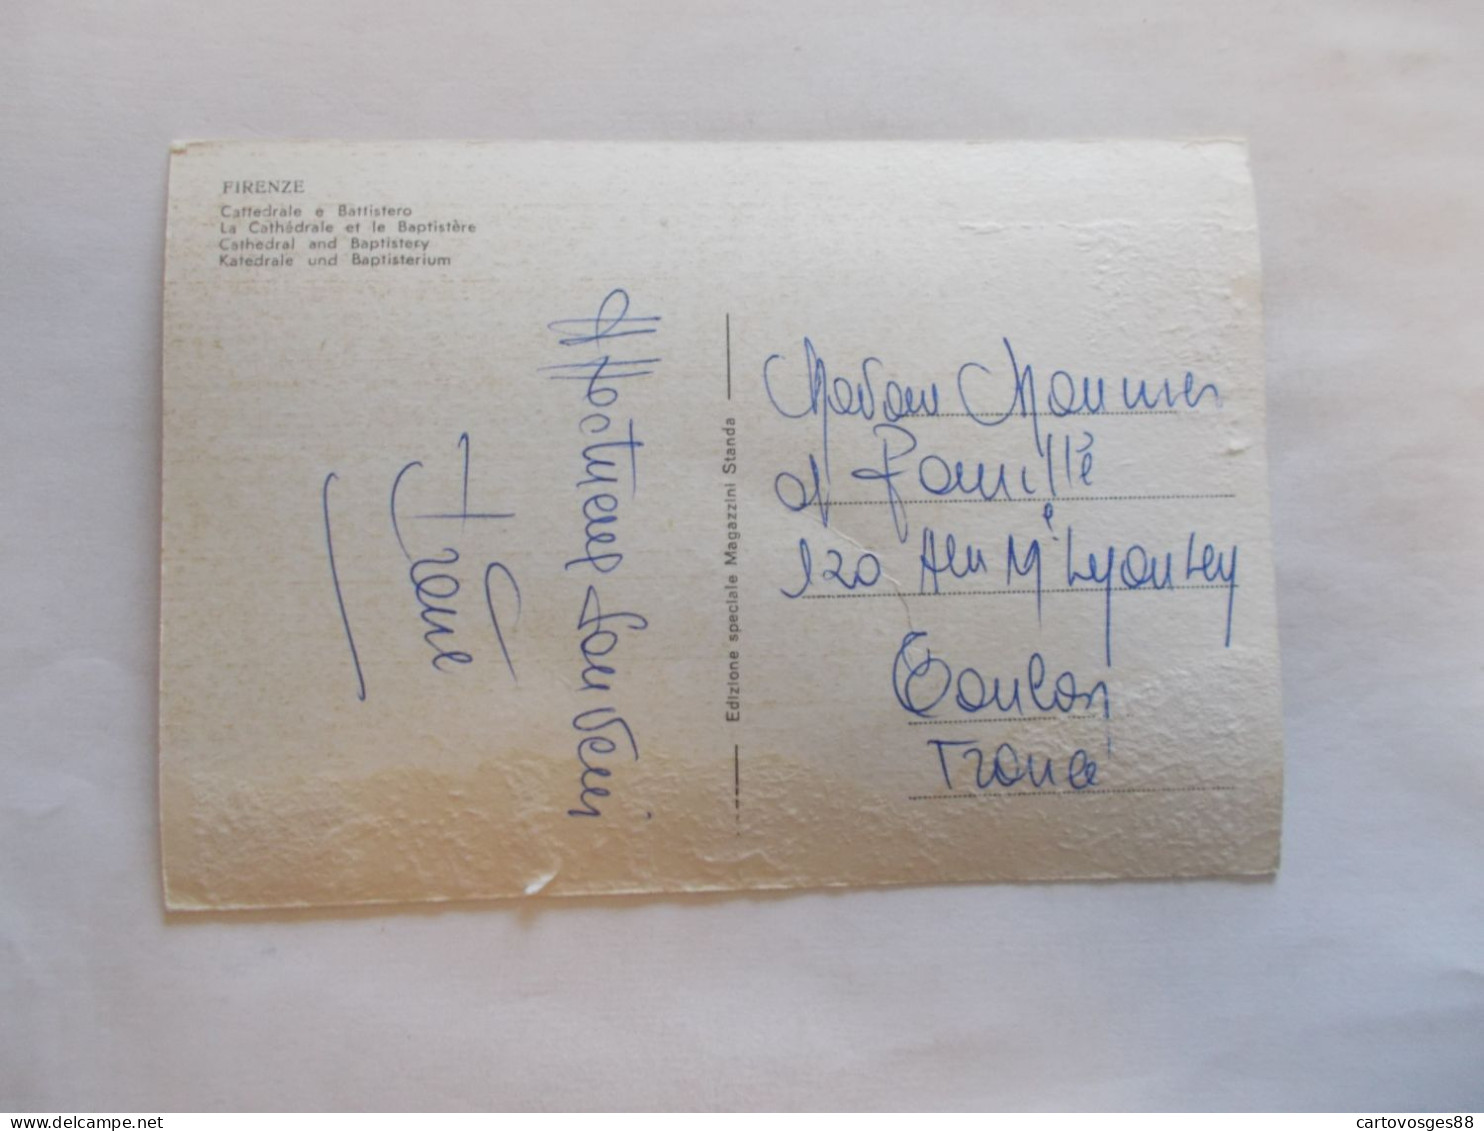 FIRENZE
Cattedrale e Battistero
La Cathédrale et le Baptistère
Cathedral and Baptistery
Katedrale und Baptisterium
Affectueux Souvenir
Edizione speciale Magazzini Standa
Madame Mounier
et famille
120 Lyautey
Toulon
France
cartovosges88